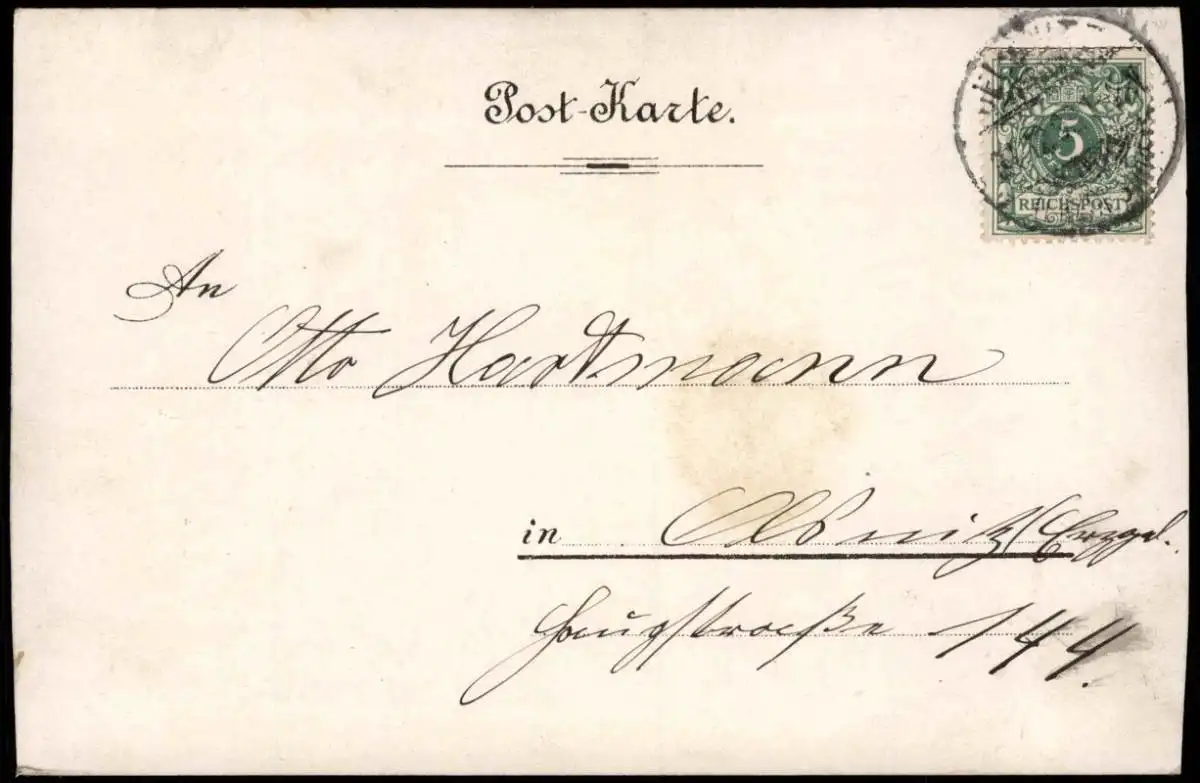 Post-Karte.
5
REICHSPOST
An
Otto Hartmann
in Ölsnitz/Erzgeb.
144.